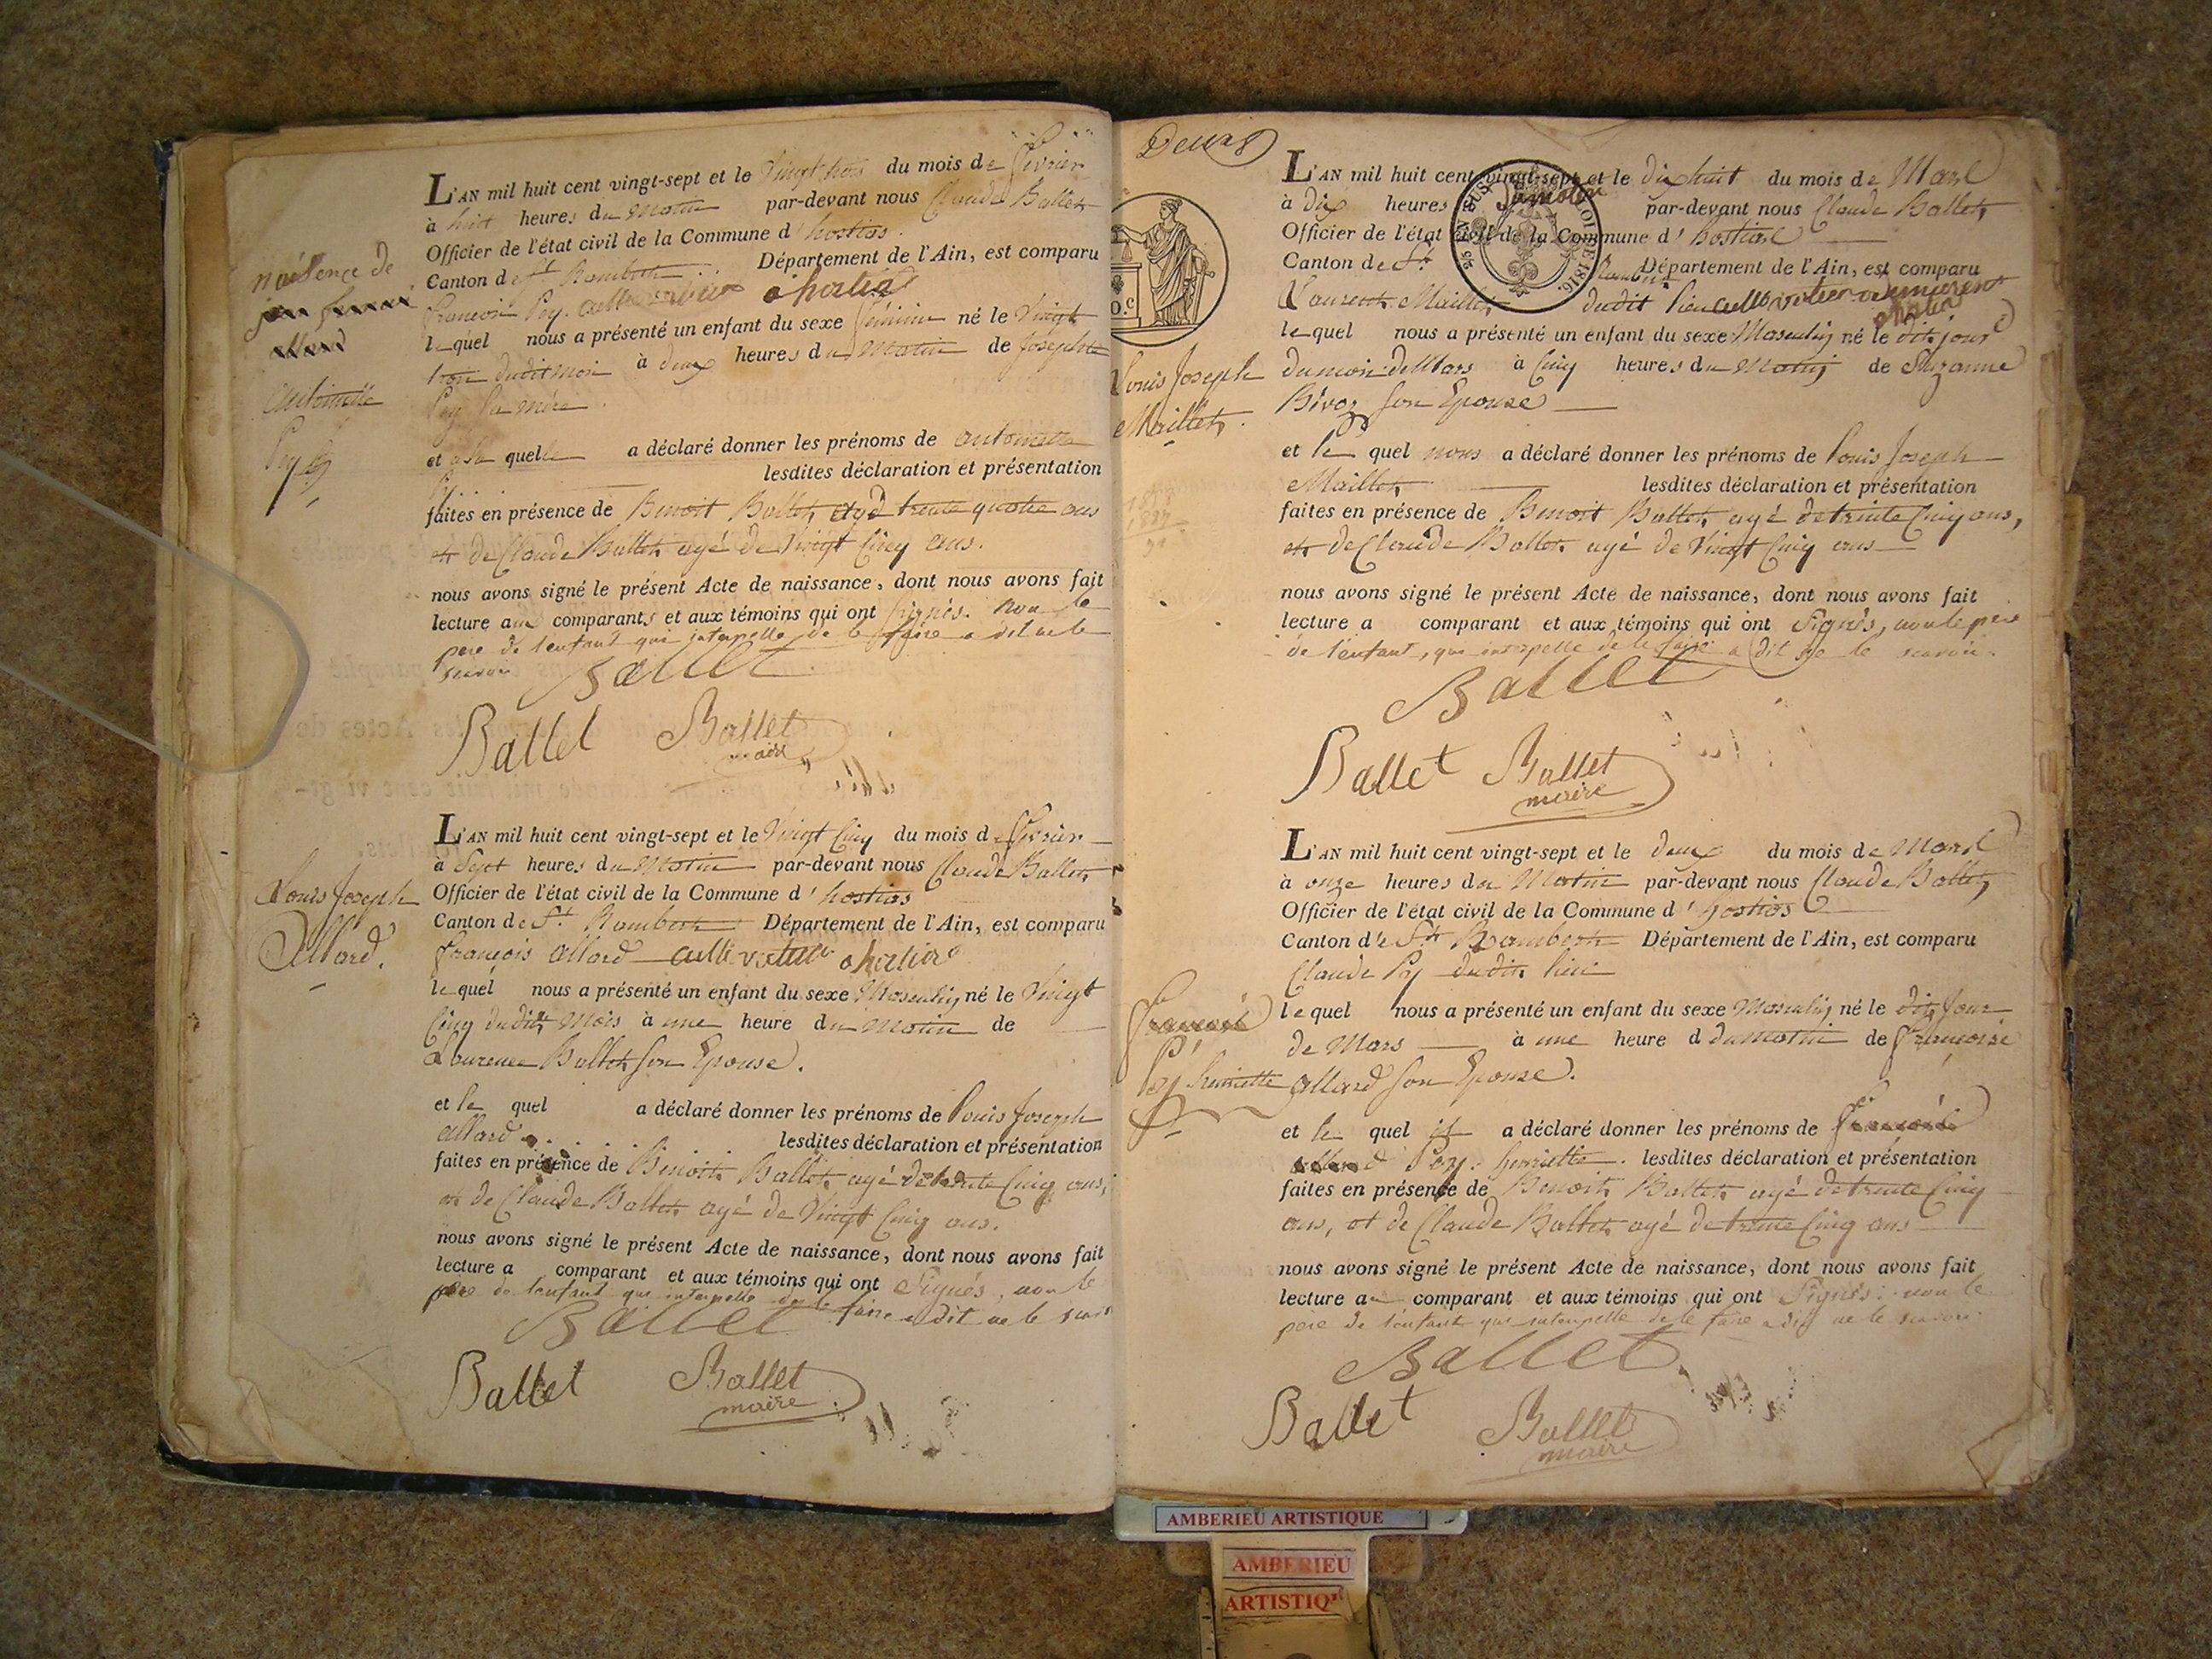 naissence de
Antoinette
Pey
L'AN mil huit cent vingt-sept et le Vingt trois du mois de fevrier
à huit heures du Matin par-devant nous Claude Ballet
Officier de l'état civil de la Commune d'hostias
Canton de St Rambert Département de l'Ain, est comparu
françois Pey cultivateur a hostias
lequel nous a présenté un enfant du sexe feminin né le Vingt
trois dudit mois à deux heures du Matin de Josephte
Pey sa mère
et a la quelle a déclaré donner les prénoms de antoinette
Py lesdites déclaration et présentation
faites en présence de Benoit Ballet, agé trente quatre ans
et de Claude Ballet agé de Vingt Cinq ans.
nous avons signé le présent Acte de naissance, dont nous avons fait
lecture aux comparants et aux témoins qui ont signés. Non le
pere de l'enfant qui interpelle de le faire a dit ne le
savoir
Ballet
Ballet Ballet
maire
Louis Joseph
Allard.
L'AN mil huit cent vingt-sept et le Vingt Cinq du mois de fevrier
à Sept heures du Matin par-devant nous Claude Ballet
Officier de l'état civil de la Commune d'hostias
Canton de St Rambert Département de l'Ain, est comparu
françois allard cultivateur a hostias
lequel nous a présenté un enfant du sexe Masculin né le Vingt
Cinq dudit Mois à une heure du Matin de
Laurence Ballet son Epouse.
et le quel a déclaré donner les prénoms de Louis Joseph
allard lesdites déclaration et présentation
faites en présence de Benoit Ballet agé de trente Cinq ans,
et de Claude Ballet agé de Vingt Cinq ans.
nous avons signé le présent Acte de naissance, dont nous avons fait
lecture a comparant et aux témoins qui ont Signés, non le
père de l'enfant qui interpelle de le faire a dit ne le
Ballet
Ballet Ballet
maire
Deux
Louis Joseph
Maillet
L'AN mil huit cent vingt-sept et le dix huit du mois de Mars
à dix heures du matin par-devant nous Claude Ballet
Officier de l'état civil de la Commune d'hostias
Canton de St Rambert Département de l'Ain, est comparu
Laurent Maillet dudit lieu cultivateur demeurent
a hostias
lequel nous a présenté un enfant du sexe Masculin né le dit jour
du mois de Mars à Cinq heures du Matin de Suzanne
Bévoz son Epouse
et le quel nous a déclaré donner les prénoms de Louis Joseph
Maillet lesdites déclaration et présentation
faites en présence de Benoit Ballet agé de trente Cinq ans,
et de Claude Ballet agé de Vingt Cinq ans
nous avons signé le présent Acte de naissance, dont nous avons fait
lecture a comparant et aux témoins qui ont Signés, non le pere
de l'enfant, qui interpelle de le faire a dit ne le savoir.
Ballet
Ballet Ballet
maire
Py henriette
L'AN mil huit cent vingt-sept et le deux du mois de Mars
à onze heures du Matin par-devant nous Claude Ballet
Officier de l'état civil de la Commune d'hostias
Canton de St Rambert Département de l'Ain, est comparu
Claude Py dudit lieu
lequel nous a présenté un enfant du sexe Masculin né le dit Jour
de Mars à une heure d du matin de françoise
allard son Epouse.
et le quel il a déclaré donner les prénoms de
Pey henriette. lesdites déclaration et présentation
faites en présence de Benoit Ballet agé de trente Cinq
ans, et de Claude Ballet agé de trente Cinq ans
nous avons signé le présent Acte de naissance, dont nous avons fait
lecture au comparant et aux témoins qui ont Signés. non le
père de l'enfant qui interpelle de le faire a dit ne le savoir
Ballet
Ballet Ballet
maire
AMBERIEU ARTISTIQUE
AMBERIEU
ARTISTIQ